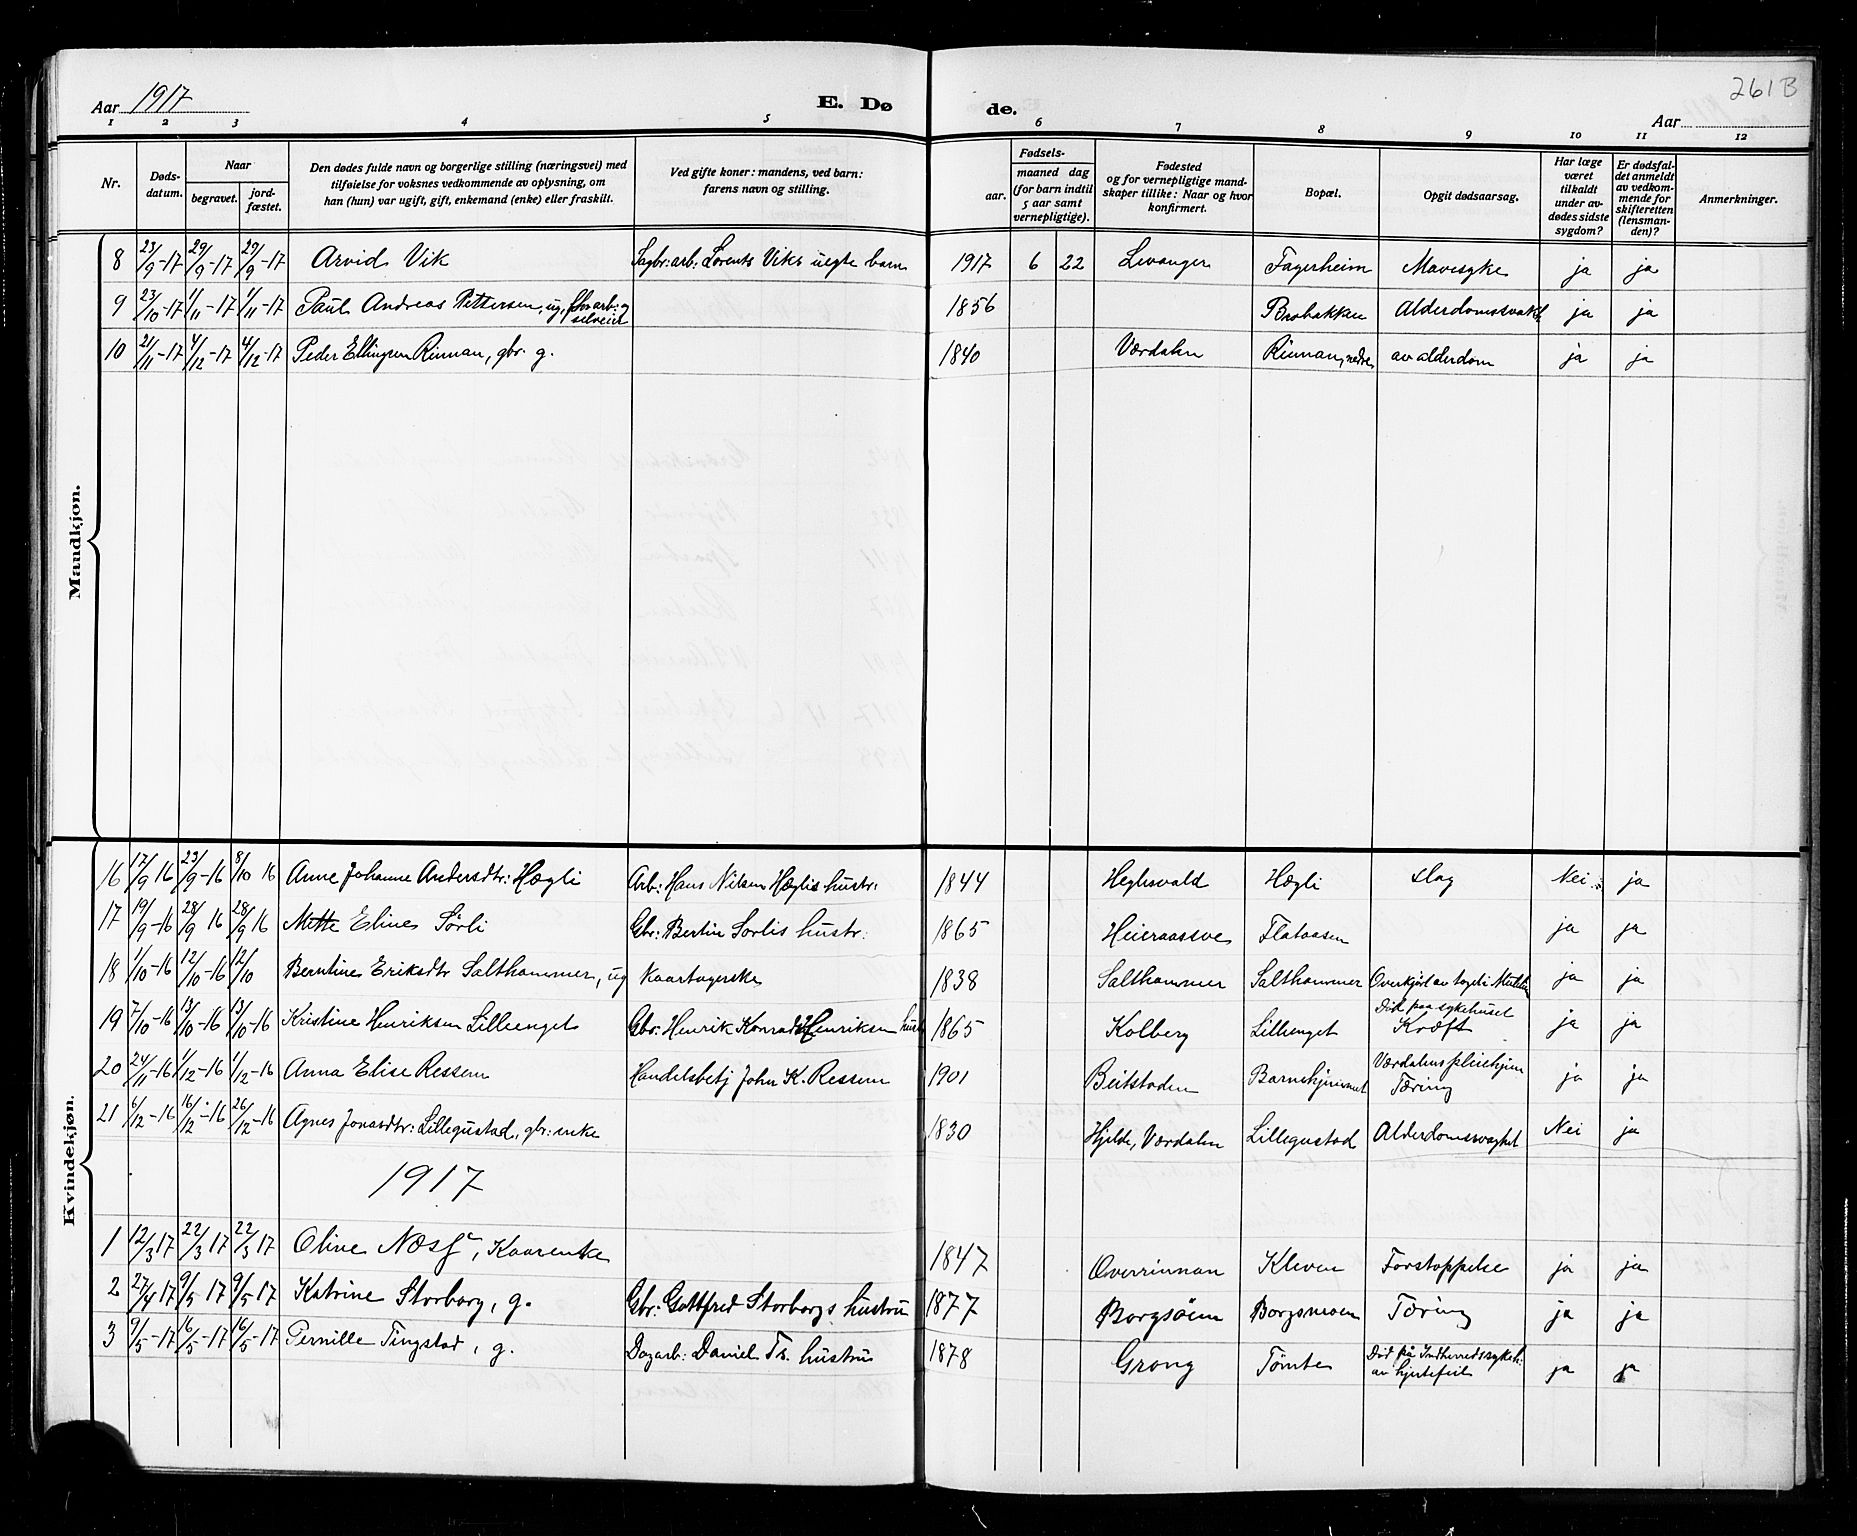 261B
Aar 1917 E. Døde. Aar
1 2 3 4 5 6 7 8 9 10 11 12
Nr. | Døds-datum. | Naar begravet. | Naar jord-fæstet. | Den dødes fulde navn og borgerlige stilling (næringsvei) med tilføielse for voksnes vedkommende av oplysning, om han (hun) var ugift, gift, enkemand (enke) eller fraskilt. | Ved gifte koner: mandens, ved barn: farens navn og stilling. | Fødsels- aar. maaned dag (for barn indtil 5 aar samt vernepligtige). | Fødested og for vernepligtige mand-skaper tillike: Naar og hvor konfirmert. | Bopæl. | Opgit dødsaarsag. | Har læge været tilkaldt under av-dødes sidste sygdom? | Er dødsfal-det anmeldt av vedkom-mende for skifteretten (lensman-den)? | Anmerkninger.
Mandkjøn.
8 23/9-17 29/9-17 29/9-17 Arvid Vik Sagbr: arb: Lorents Viks uegte barn 1917 6 22 Levanger Fagerheim Mavesyke ja ja
9 23/10-17 1/11-17 1/11-17 Paul Andreas Pettersen, ug, 1856 Brobakken Alderdomssvakh. ja ja
10 21/11-17 4/12-17 4/12-17 Peder Ellingsen Rinnan, gbr. g. 1840 Værdalen Rinnan, nedre av alderdom ja ja
Kvindekjøn.
16 17/9 16 23/9-16 8/10 16 Anne Johanne Andersdtr: Hægli Arb: Hans Nilsen Hæglis hustr: 1844 Heglesvald Hægli slag Nei ja
17 19/9-16 28/9 16 28/9 16 Mette Eline Sørli Gbr: Bertin Sørlis hustr: 1865 Heieraasve Flataasen ja ja
18 1/10-16 12/10-16 12/10 Berntine Eriksdtr Salthammer, ug Kaartagerske 1838 Salthammer Salthammer Overkjørt av toget i ja ja
19 7/10-16 13/10-16 13/10-16 Kristine Henriksen Lilleenget Gbr: Henrik Konrad Henriksen hust 1865 Kolberg Lillenget Død paa sykehuset Kræft ja ja
20 24/11-16 1/12-16 1/12-16 Anna Elise Ressem Handelsbetj John K. Ressem 1901 Beitstaden Barnehjemmet Værdalens pleiehjem Tæring ja ja
21 6/12-16 16/12-16 26/12-16 Agnes Jonasdtr: Lillegustad, gbr: enke 1830 Hjelde, Værdalen Lillegustad Alderdomssvaghet Nei ja
1917
1 12/3 17 22/3 17 22/3 17 Oline Næss, Kaarenke 1847 Overrinnan Kleven Forstoppelse ja ja
2 27/4 17 9/5 17 9/5 17 Katrine Storborg, g. Gbr: Gottfred Storborgs hustru 1877 Borgsöen Borgsmoen Tæring ja ja
3 9/5-17 16/5-17 16/5-17 Pernille Tingstad, g. Dagarb: Daniel Ts. hustru 1878 Grong Tømte Död på Indherredssykeh: av hjertefeil ja ja